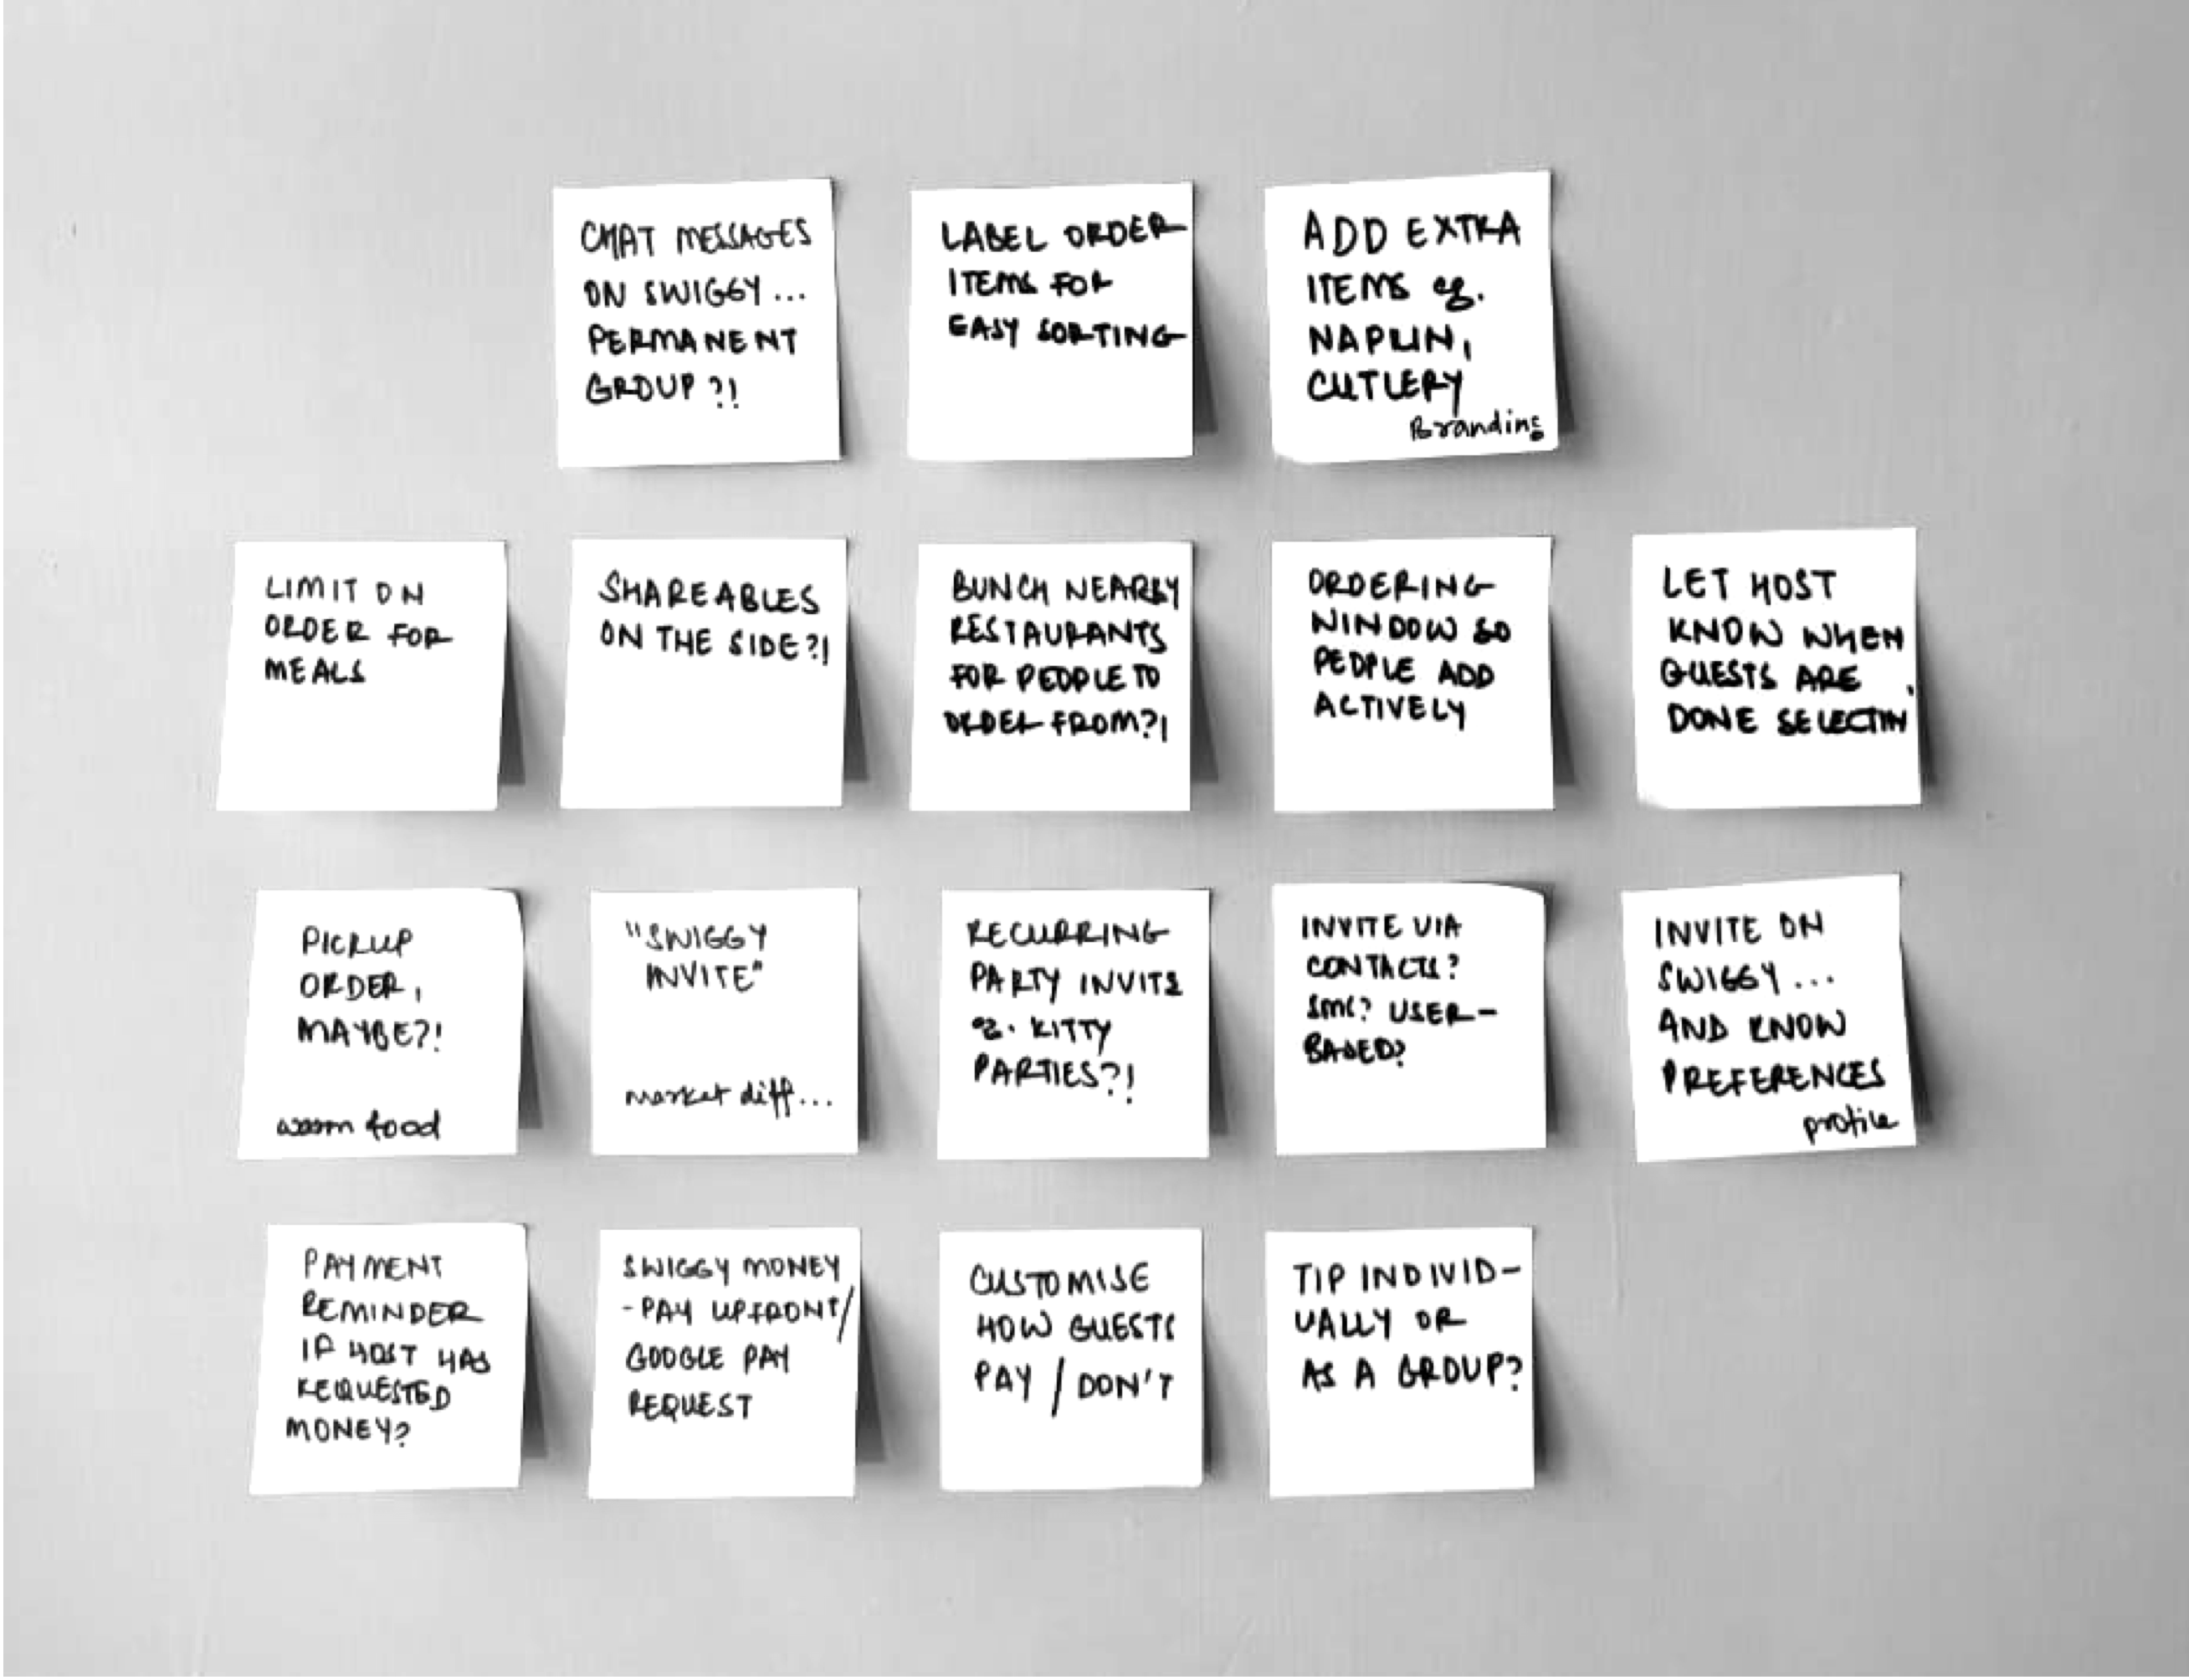 CHAT MESSAGES
ON SWIGGY...
PERMANENT
GROUP?!
LABEL ORDER
ITEMS FOR
EASY SORTING
ADD EXTRA
ITEMS eg.
NAPKIN,
CUTLERY
Branding
LIMIT ON
ORDER FOR
MEALS
SHAREABLES
ON THE SIDE?!
BUNCH NEARBY
RESTAURANTS
FOR PEOPLE TO
ORDER FROM?!
ORDERING
WINDOW SO
PEOPLE ADD
ACTIVELY
LET HOST
KNOW WHEN
GUESTS ARE
DONE SELECTIN
PICKUP
ORDER,
MAYBE?!
warm food
"SWIGGY
INVITE"
market diff...
RECURRING
PARTY INVITE
eg. KITTY
PARTIES?!
INVITE VIA
CONTACTS?
SMS? USER-
BASED?
INVITE ON
SWIGGY...
AND KNOW
PREFERENCES
profile
PAYMENT
REMINDER
IF HOST HAS
REQUESTED
MONEY?
SWIGGY MONEY
- PAY UPFRONT/
GOOGLE PAY
REQUEST
CUSTOMISE
HOW GUESTS
PAY / DON'T
TIP INDIVID-
UALLY OR
AS A GROUP?